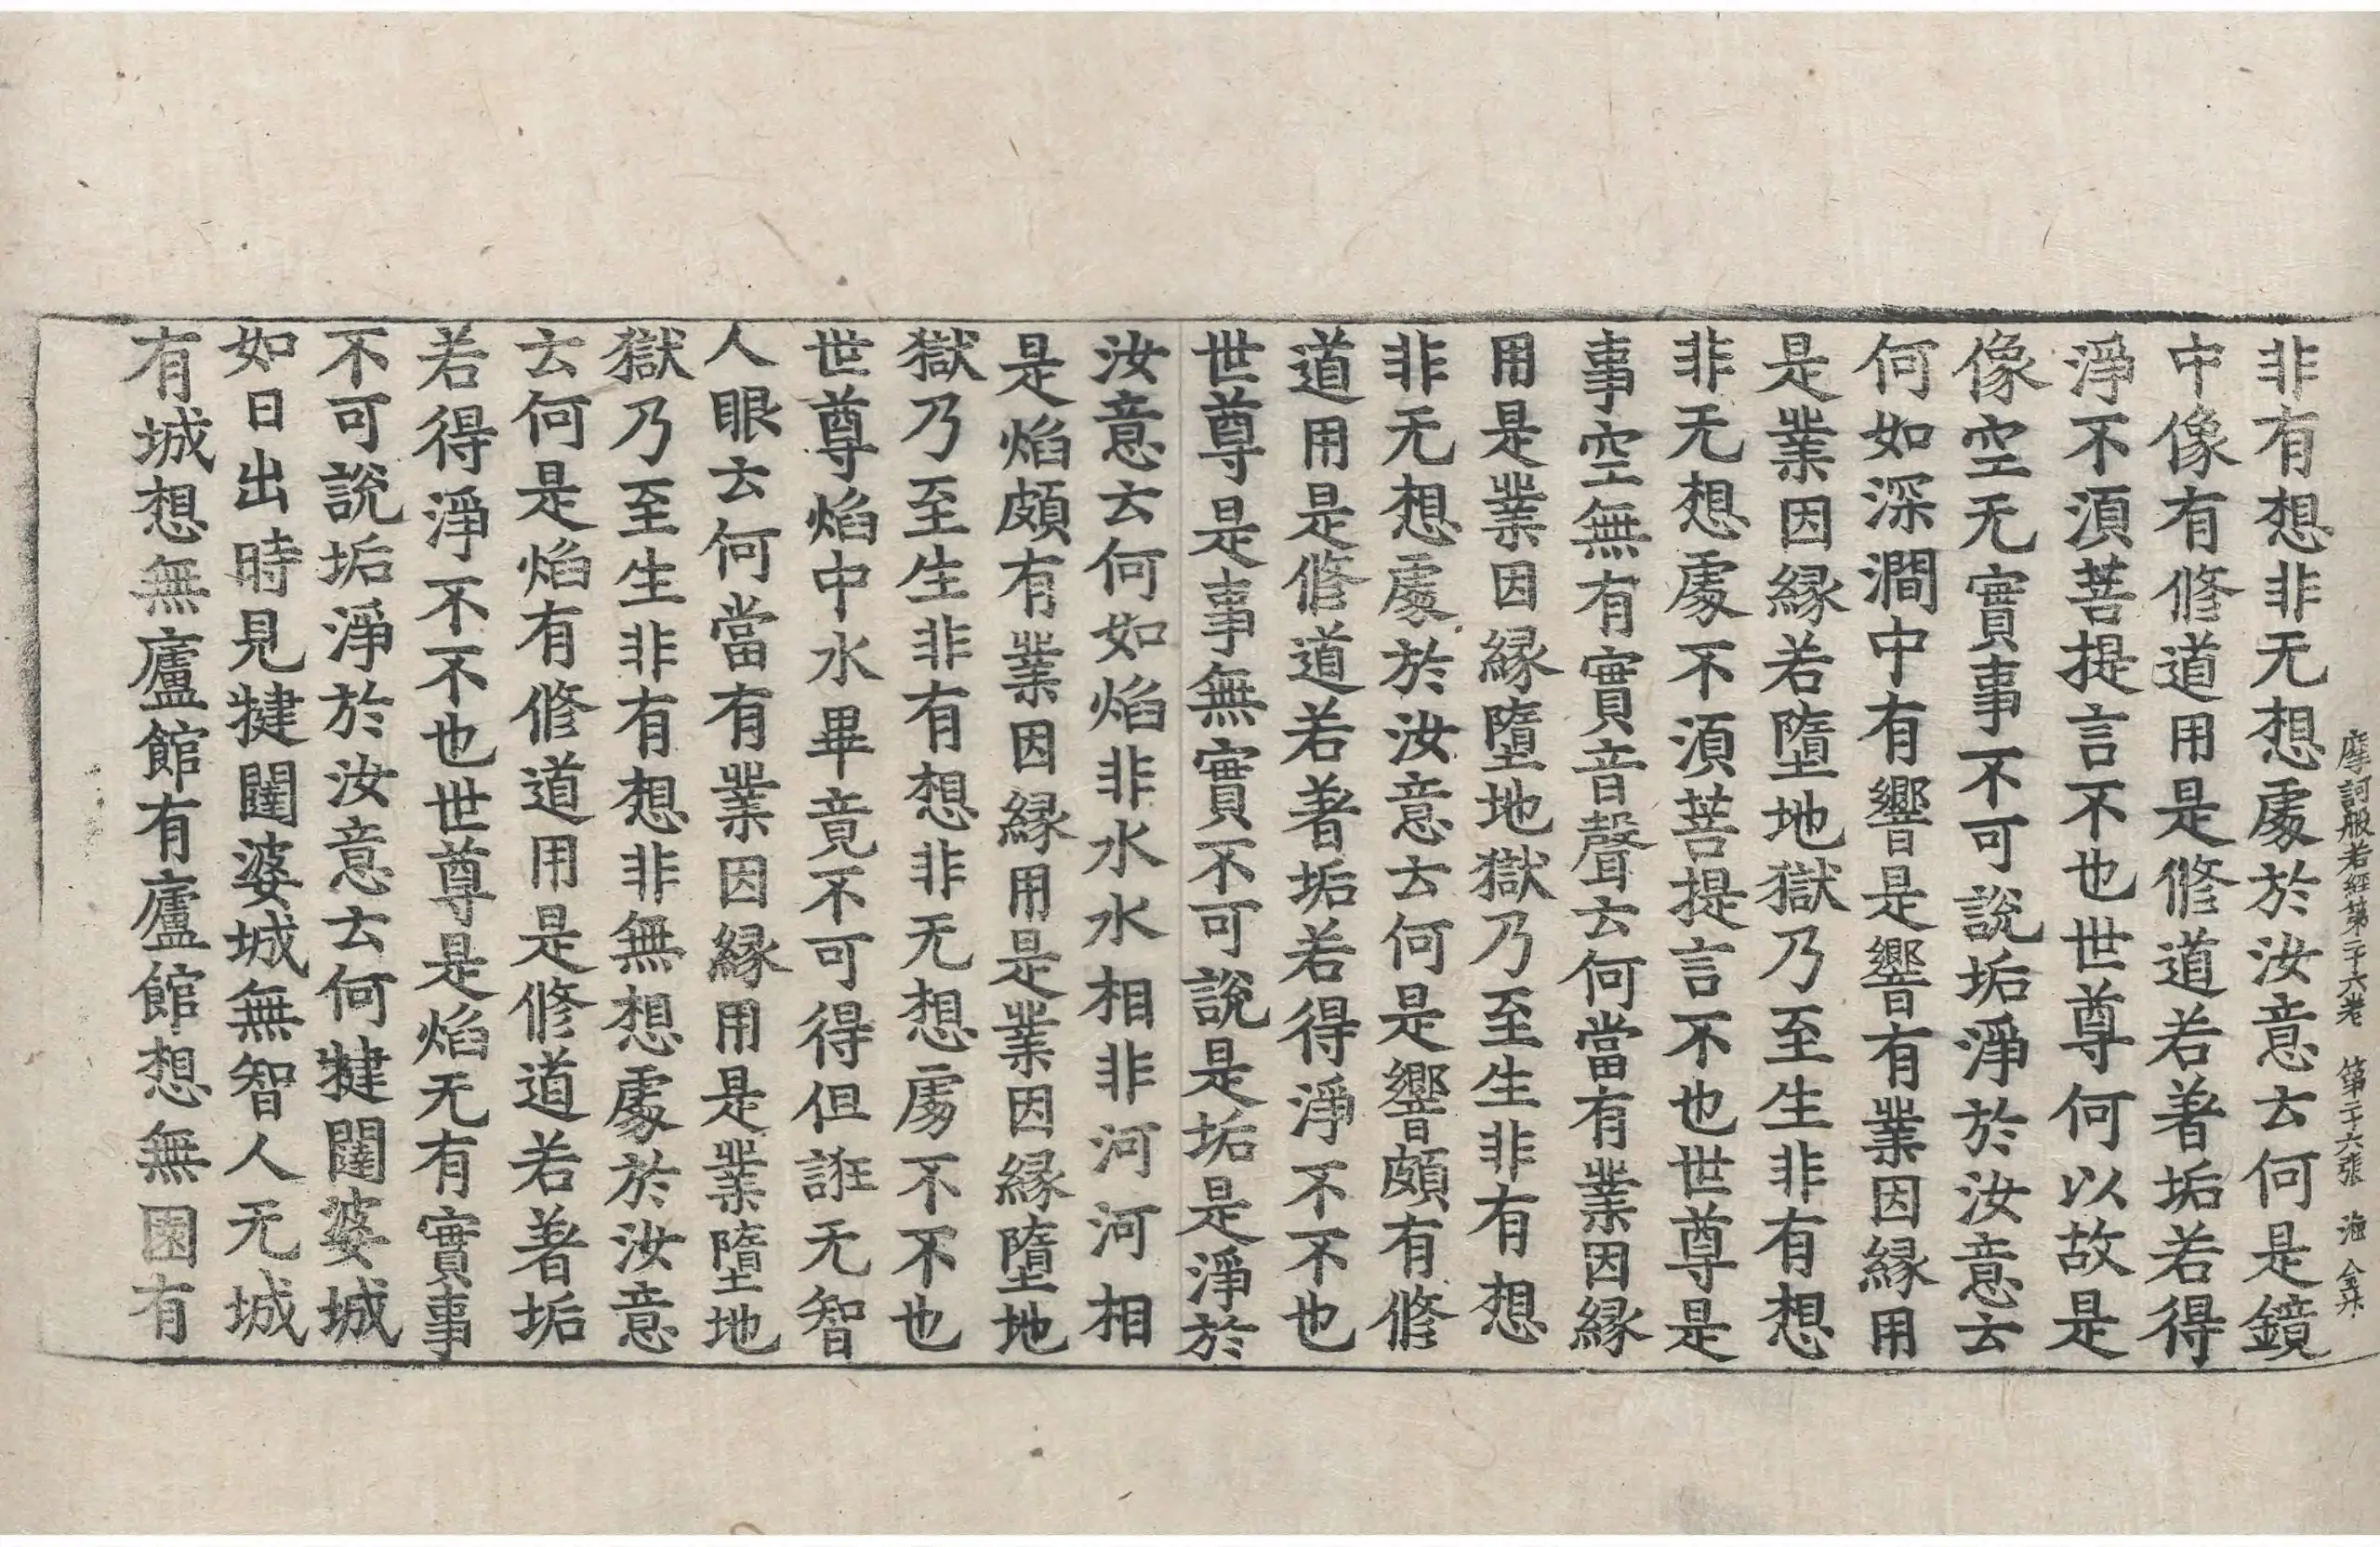 摩訶般若經第二十六卷 第二十六張 海 金升
非有想非无想處於汝意云何是鏡
中像有修道用是修道若著垢若得
淨不須菩提言不也世尊何以故是
像空无實事不可說垢淨於汝意云
何如深澗中有響是響有業因緣用
是業因緣若墮地獄乃至生非有想
非无想處不須菩提言不也世尊是
事空無有實音聲云何當有業因緣
用是業因緣墮地獄乃至生非有想
非无想處於汝意云何是響頗有修
道用是修道若著垢若得淨不不也
世尊是事無實不可說是垢是淨於
汝意云何如焰非水水相非河河相
是焰頗有業因緣用是業因緣墮地
獄乃至生非有想非无想處不不也
世尊焰中水畢竟不可得但誑无智
人眼云何當有業因緣用是業墮地
獄乃至生非有想非無想處於汝意
云何是焰有修道用是修道若著垢
若得淨不不也世尊是焰无有實事
不可說垢淨於汝意云何揵闥婆城
如日出時見揵闥婆城無智人无城
有城想無廬館有廬館想無園有